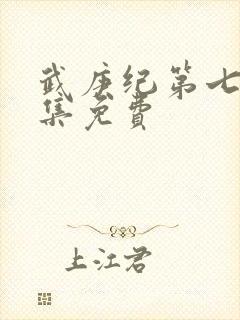 武庚纪第七
集免费
上江君